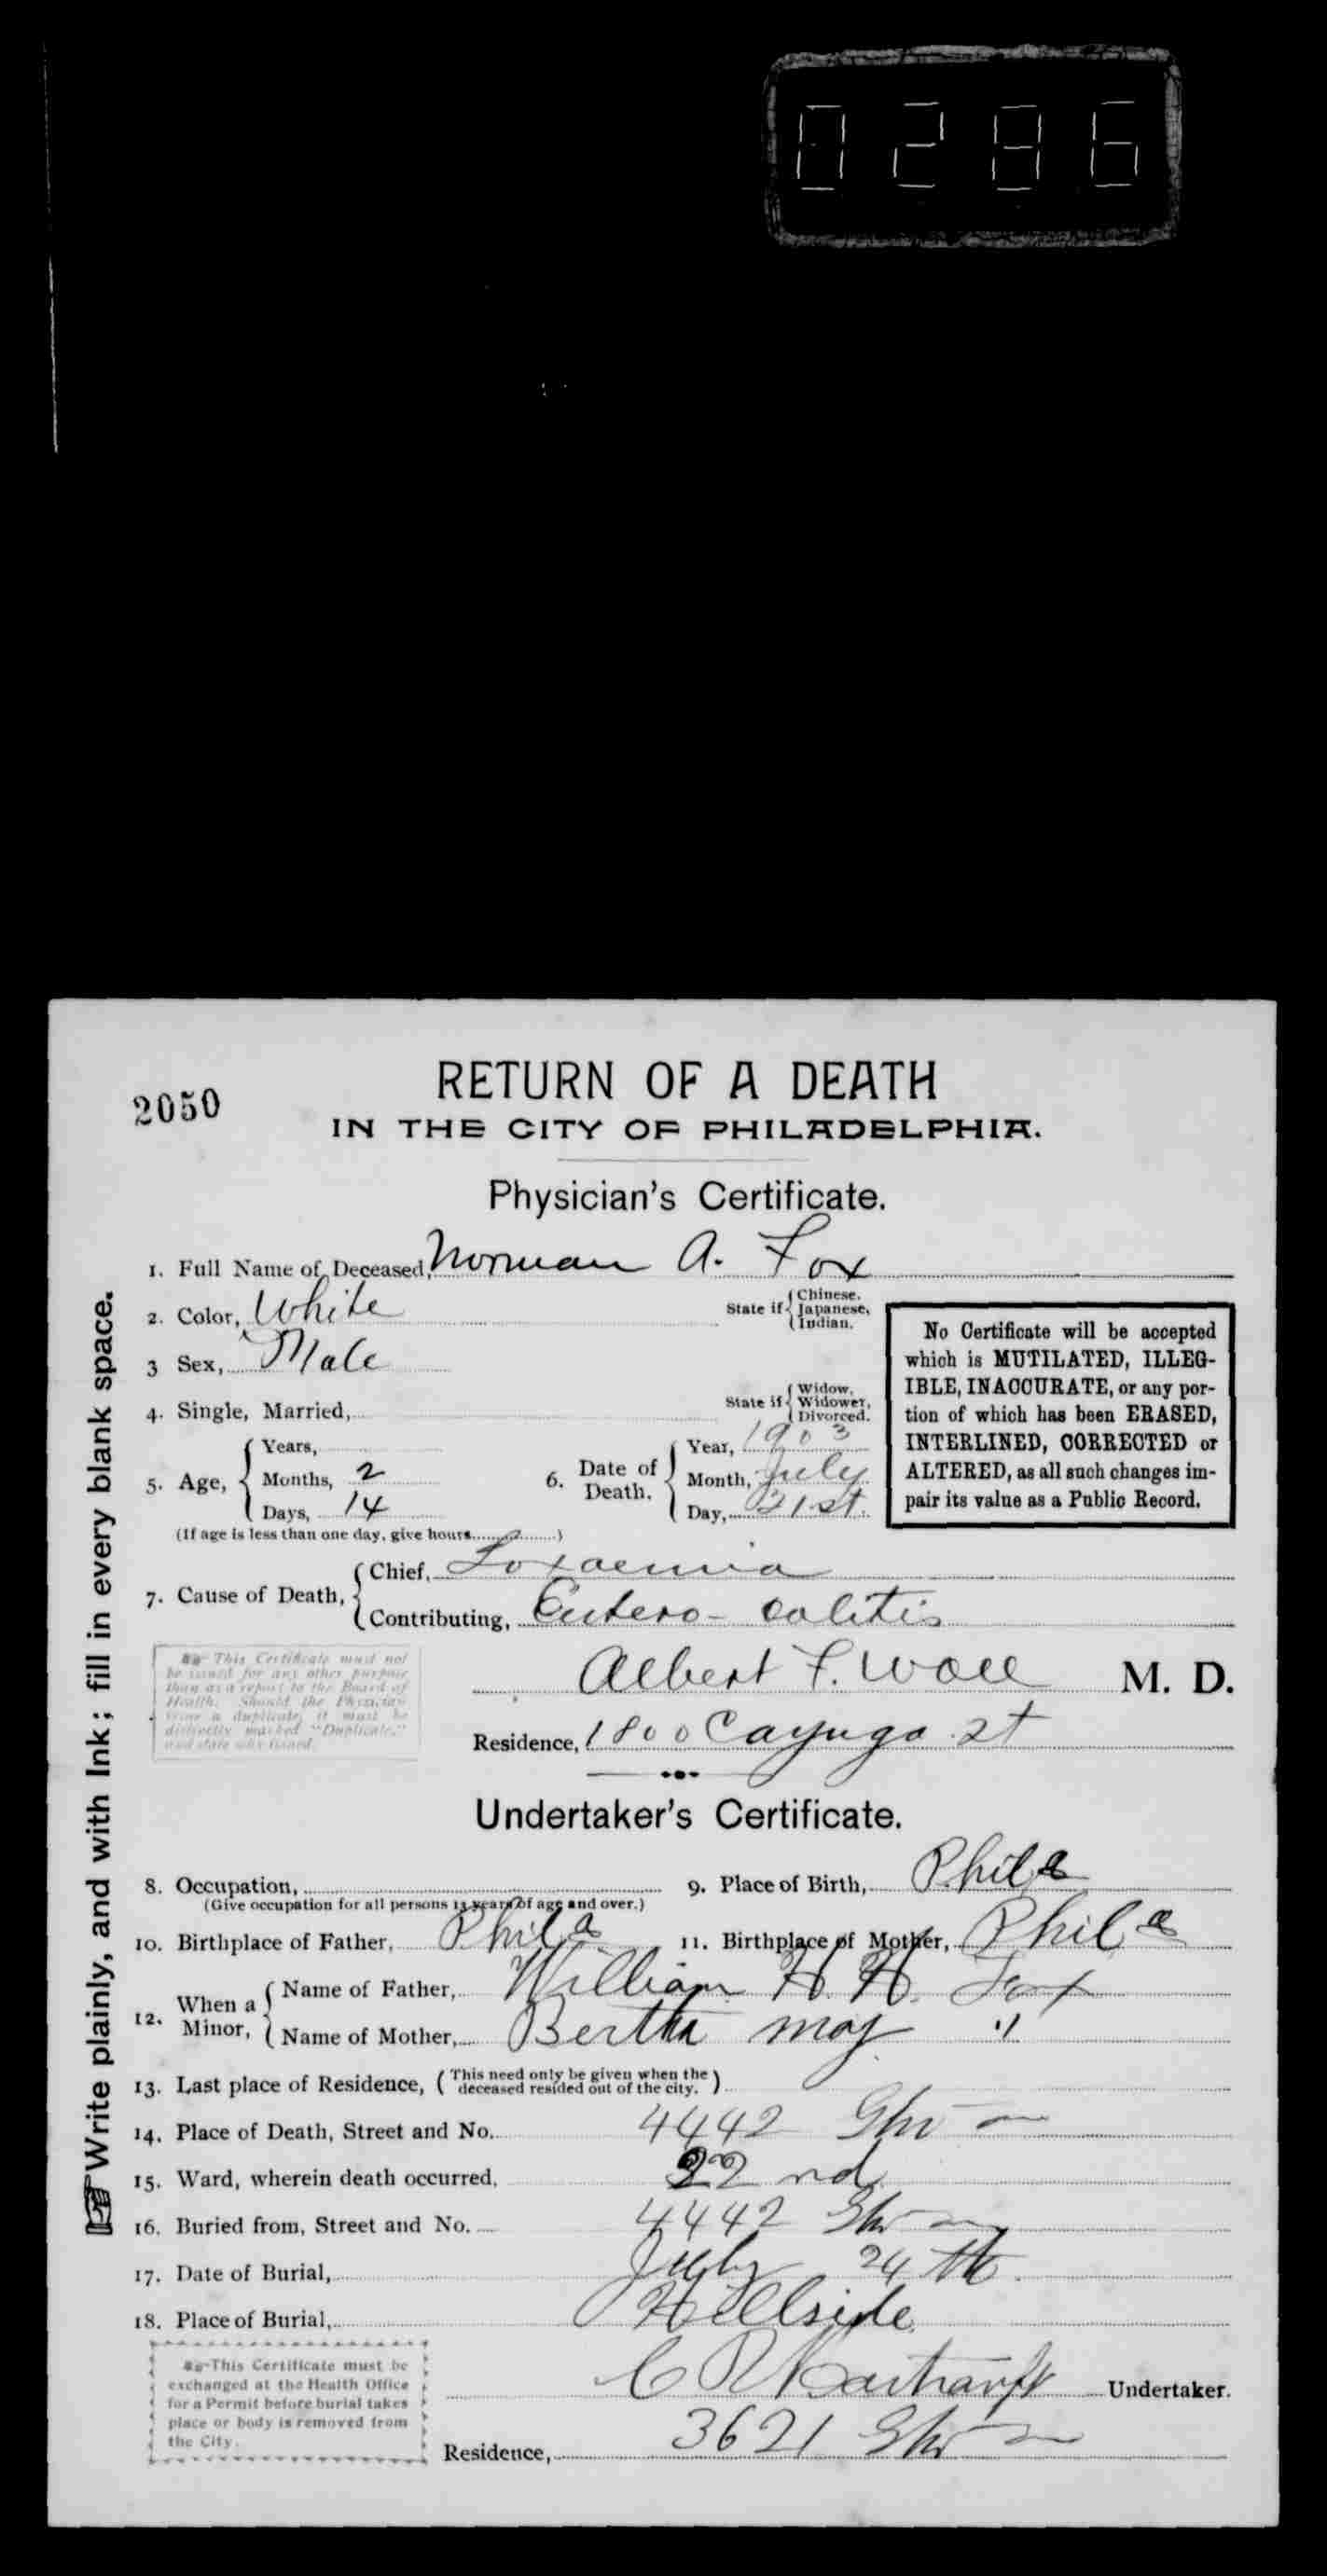 0286
2050
RETURN OF A DEATH
IN THE CITY OF PHILADELPHIA.
Physician's Certificate.
1. Full Name of Deceased, Norman A. Fox
2. Color, White State if { Chinese, Japanese, Indian.
3 Sex, Male
4. Single, Married, State if { Widow, Widower, Divorced.
5. Age, { Years,
Months, 2
Days, 14
(If age is less than one day, give hours )
6. Date of Death. { Year, 1903
Month, July
Day, 21st.
No Certificate will be accepted
which is MUTILATED, ILLEG-
IBLE, INACCURATE, or any por-
tion of which has been ERASED,
INTERLINED, CORRECTED or
ALTERED, as all such changes im-
pair its value as a Public Record.
7. Cause of Death, { Chief, Toxaemia
Contributing, Entero-colitis
This Certificate must not
be issued for any other purpose
than as a report to the Board of
Health. Should the Physician
issue a duplicate, it must be
distinctly marked "Duplicate,"
and state why issued.
Albert F. Woll M. D.
Residence, 1800 Cayuga St
Undertaker's Certificate.
8. Occupation,
(Give occupation for all persons 15 years of age and over.)
9. Place of Birth, Phila
10. Birthplace of Father, Phila 11. Birthplace of Mother, Phila
12. When a Minor, { Name of Father, William H. H. Fox
Name of Mother, Bertha May "
13. Last place of Residence, ( This need only be given when the deceased resided out of the city. )
14. Place of Death, Street and No. 4442
15. Ward, wherein death occurred, 22nd
16. Buried from, Street and No. 4442
17. Date of Burial, July 24th.
18. Place of Burial, Hillside
This Certificate must be
exchanged at the Health Office
for a Permit before burial takes
place or body is removed from
the City.
C R Bartranft Undertaker.
Residence, 3621
Write plainly, and with Ink; fill in every blank space.